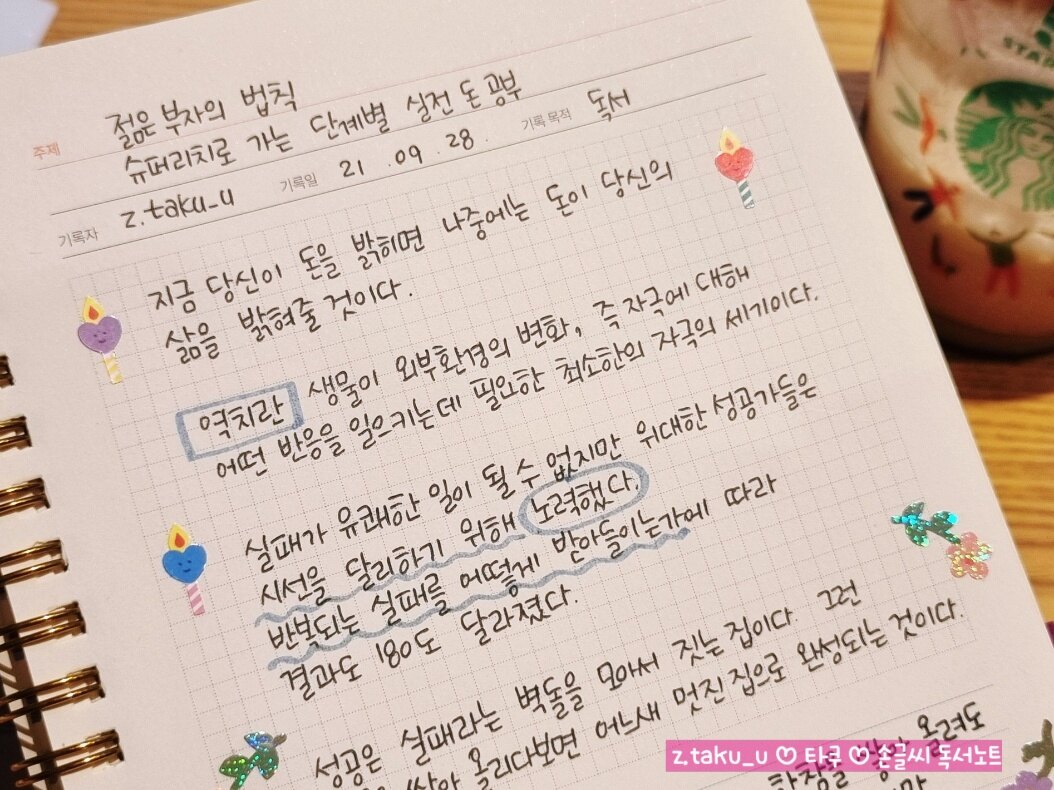 주제
젊은 부자의 법칙
슈퍼리치로 가는 단계별 실전 돈 공부
기록자 z.taku_u 기록일 21.09.28. 기록 목적 독서
지금 당신이 돈을 밝히면 나중에는 돈이 당신의
삶을 밝혀줄 것이다.
역치란 생물이 외부환경의 변화, 즉 자극에 대해
어떤 반응을 일으키는데 필요한 최소한의 자극의 세기이다.
실패가 유쾌한 일이 될 수 없지만 위대한 성공가들은
시선을 달리하기 위해 노력했다.
반복되는 실패를 어떻게 받아들이는가에 따라
결과도 180도 달라졌다.
성공은 실패라는 벽돌을 모아서 짓는 집이다. 그런
올리다보면 어느새 멋진 집으로 완성되는 것이다.
올려도
z.taku_u ♡ 타쿠 ♡ 손글씨 독서노트